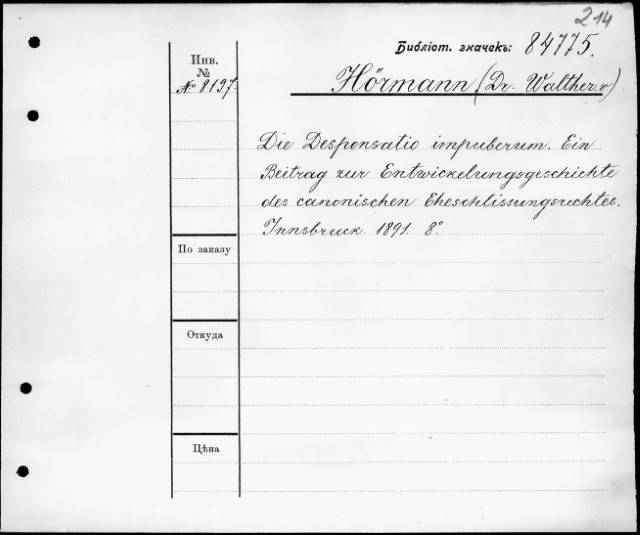 214
Библіот. значекъ: 84775.
Инв.
№
№ 8197
Hörmann (Dr. Walther v)
Die Desponsatio impuberum. Ein
Beitrag zur Entwickelungsgeschichte
des canonischen Eheschlissungsrechtes.
Innsbruck. 1891. 8°
По заказу
Откуда
Цѣна